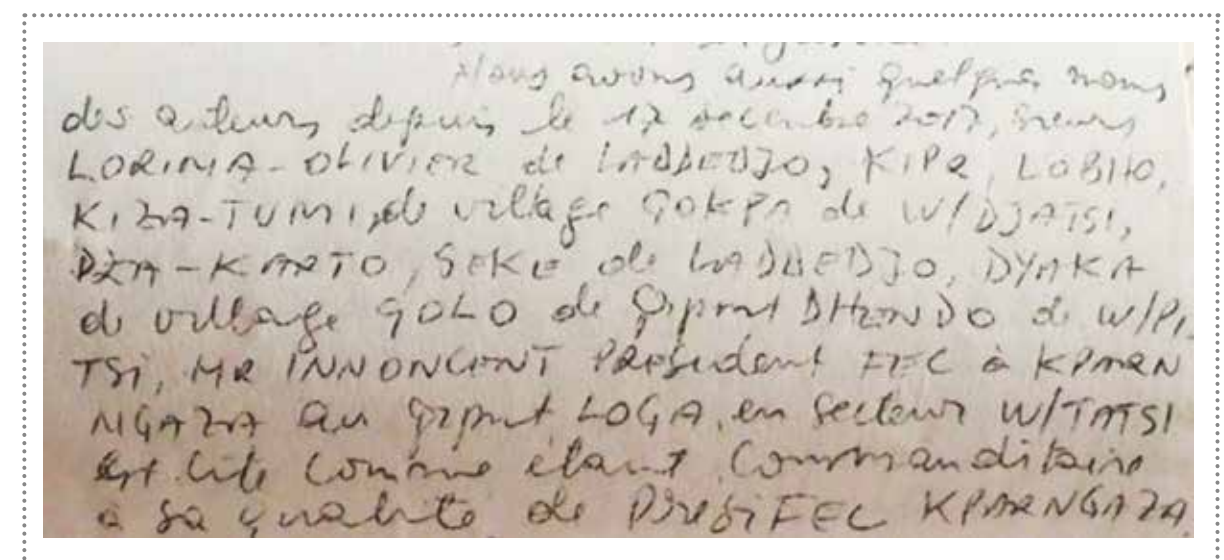 Nous avons aussi quelques noms
des auteurs depuis le 17 decembre 2017, Sieurs
LORIMA-OLIVIER de LADDEDJO, KIPR, LOBHO,
KIZA-TUMI, de village GOKPA de W/DJATSI,
DZA-KARTO, SEKE de LADDEDJO, DYAKA
de village GOLO de Grpmt DHENDO de W/PI
TSI, MR INNONCENT President FEC à KPARN
NGAZA au Grpmt LOGA, en Secteur W/TATSI
est cité comme étant Commanditaire
à sa qualité de PresiFEC KPARNGAZA